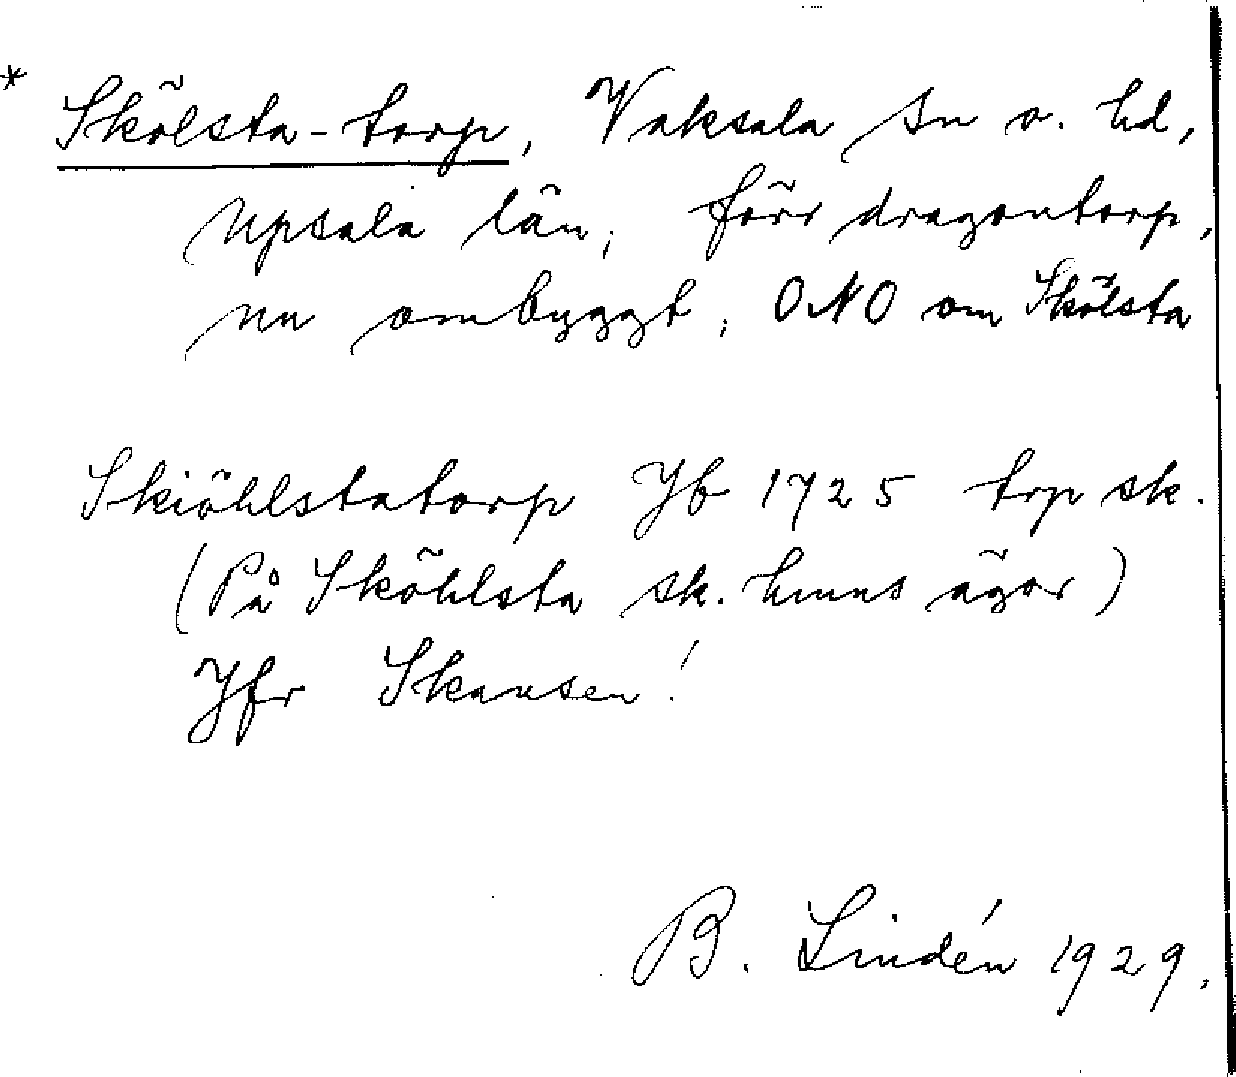 * Skölsta-torp, Vaksala sn o. hd,
Upsala län; förr dragontorp,
nu ombyggt; ONO om Skölsta
Skiöhlstatorp Jb 1725 trp sk.
(På Sköhlsta sk. hmns ägor)
Jfr Skansen!
B. Lindén 1929.